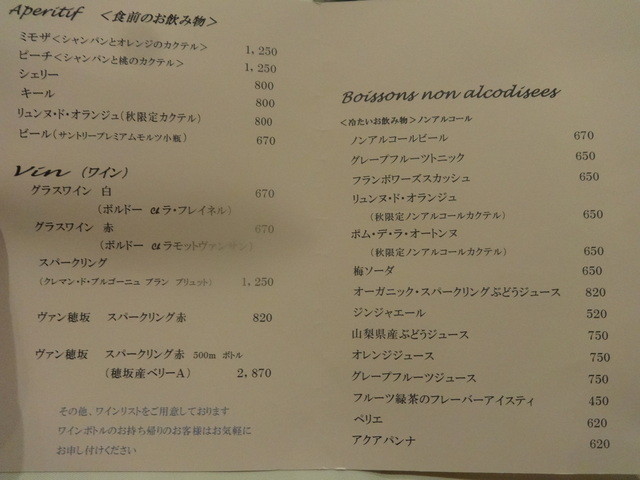 Aperitif ＜食前のお飲み物＞
ミモザ＜シャンパンとオレンジのカクテル＞ 1,250
ピーチ＜シャンパンと桃のカクテル＞ 1,250
シェリー 800
キール 800
リュンヌ・ド・オランジュ(秋限定カクテル) 800
ビール(サントリープレミアムモルツ小瓶) 670
Vin (ワイン)
グラスワイン 白 670
(ボルドー clラ・フレイネル)
グラスワイン 赤 670
(ボルドー clラモットヴァンサン)
スパークリング
(クレマン・ド・ブルゴーニュ ブラン ブリュット) 1,250
ヴァン穂坂 スパークリング赤 820
ヴァン穂坂 スパークリング赤 500m ボトル
(穂坂産ベリーA) 2,870
その他、ワインリストをご用意しております
ワインボトルのお持ち帰りのお客様はお気軽に
お申し付けください
Boissons non alcodisees
＜冷たいお飲み物＞ノンアルコール
ノンアルコールビール 670
グレープフルーツトニック 650
フランボワーズスカッシュ 650
リュンヌ・ド・オランジュ
(秋限定ノンアルコールカクテル) 650
ポム・デ・ラ・オートンヌ
(秋限定ノンアルコールカクテル) 650
梅ソーダ 650
オーガニック・スパークリングぶどうジュース 820
ジンジャエール 520
山梨県産ぶどうジュース 750
オレンジジュース 750
グレープフルーツジュース 750
フルーツ緑茶のフレーバーアイスティ 450
ペリエ 620
アクアパンナ 620